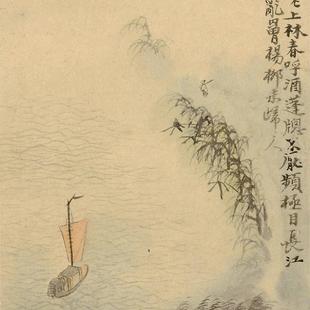 上林春呼酒蓬牕頻極目長江
楊柳未歸人